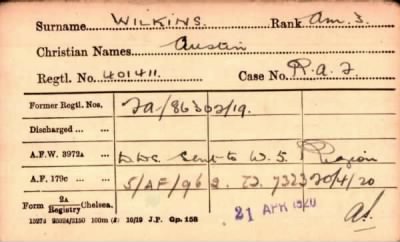 Surname WILKINS. Rank Am. 3.
Christian Names Austin
Regtl. No. 401411. Case No. R.A.F
Former Regtl. Nos. 7a/86302/19.
Discharged ... ...
A.F.W. 3972A ... DDC Sent to W. 5. Region
A.F. 179c. ... 5/AF/962. 73. 7323 20/4/20
Form 2A Registry Chelsea.
21 APR 1920
10/19 J.P. Gp. 158